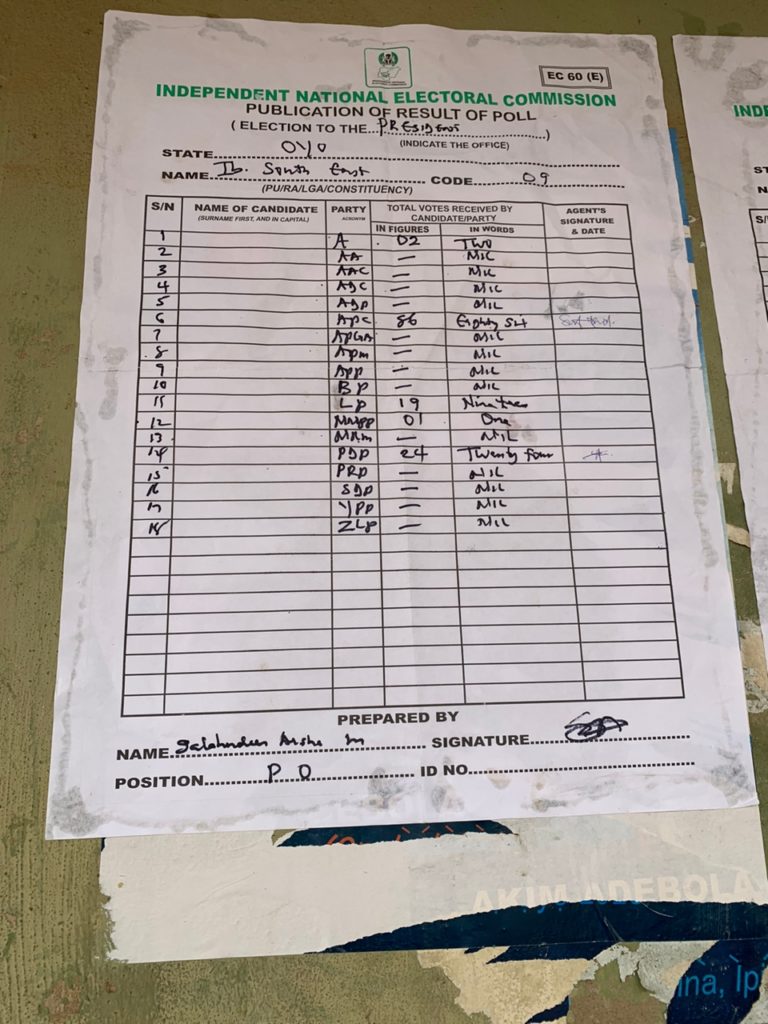 EC 60 (E)
INDEPENDENT NATIONAL ELECTORAL COMMISSION
PUBLICATION OF RESULT OF POLL
( ELECTION TO THE...PRESIDENT...)
(INDICATE THE OFFICE)
STATE OYO
NAME Ib. South East CODE 09
(PU/RA/LGA/CONSTITUENCY)
S/N NAME OF CANDIDATE (SURNAME FIRST, AND IN CAPITAL) PARTY ACRONYM TOTAL VOTES RECEIVED BY CANDIDATE/PARTY AGENT'S SIGNATURE & DATE
IN FIGURES IN WORDS
1 A 02 Two
2 AA — NIL
3 AAC — NIL
4 ADC — NIL
5 ADP — NIL
6 APC 86 Eighty Six
7 APGA — NIL
8 APM — NIL
9 APP — NIL
10 BP — NIL
11 LP 19 Nineteen
12 NNPP 01 One
13 NRM — NIL
14 PDP 24 Twenty four
15 PRP — NIL
16 SDP — NIL
17 YPP — NIL
18 ZLP — NIL
PREPARED BY
NAME SIGNATURE
POSITION P O ID NO.
AKIM ADEBOLA
INDE
ST
N
S/